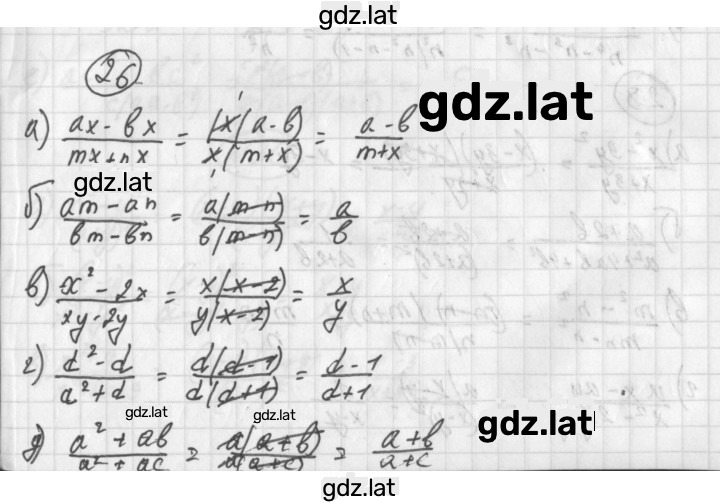 gdz.lat
26
gdz.lat
а) (ax - bx)/(mx + nx) = (x(a - b))/(x(m + x)) = (a - b)/(m + x)
gdz.lat
б) (am - an)/(bm - bn) = (a(m - n))/(b(m - n)) = a/b
в) (x² - 2x)/(xy - 2y) = (x(x - 2))/(y(x - 2)) = x/y
г) (d² - d)/(a² + d) = (d(d - 1))/(d(d + 1)) = (d - 1)/(d + 1)
gdz.lat gdz.lat gdz.lat
д) (a² + ab)/(a² + ac) = (a(a + b))/(a(a + c)) = (a + b)/(a + c)
gdz.lat